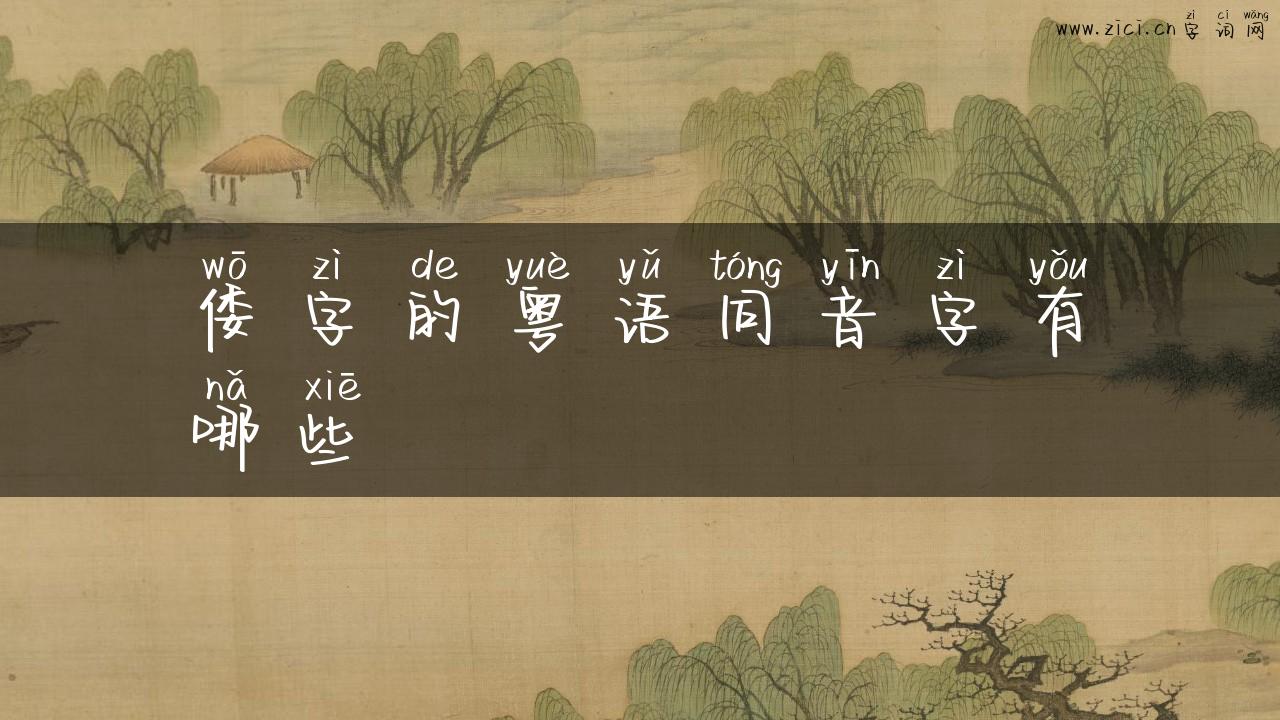 zì cí wǎng
www.zici.cn 字词网
wō zì de yuè yǔ tóng yīn zì yǒu
倭字的粤语同音字有
nǎ xiē
哪些